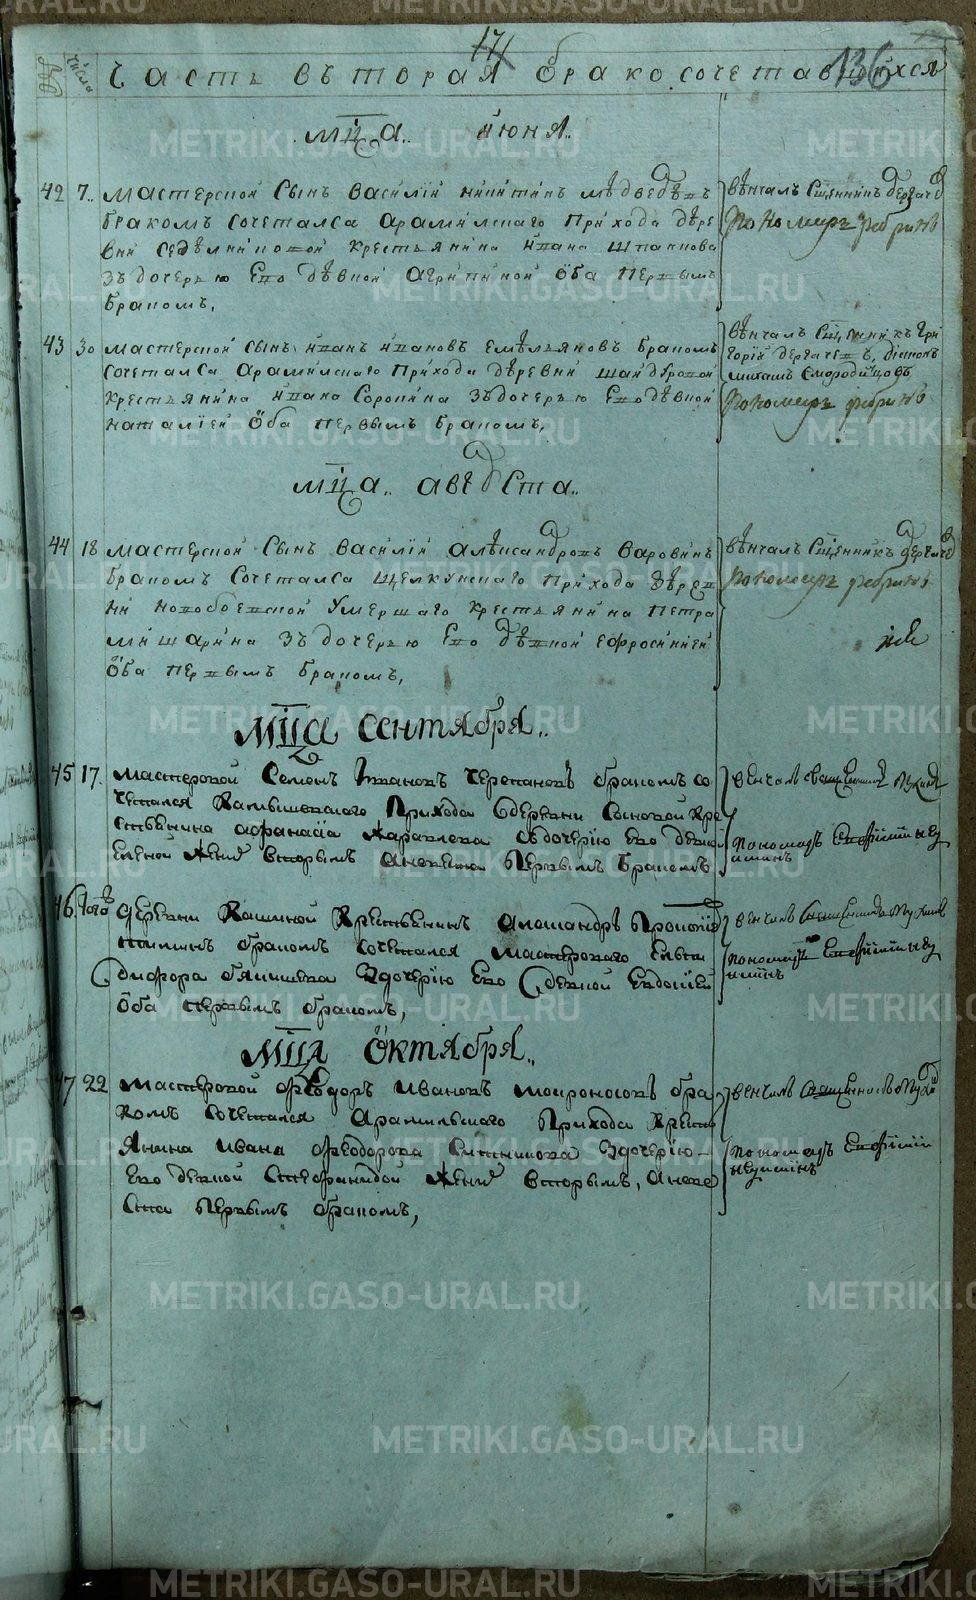 171
136
числа
Часть вторая бракосочетавшихся
мца июня
42 7 мастерской сынъ василїй никитинъ мѣдведѣвъ
бракомъ сочетался арамилскаго прихода дѣре
вни седѣлниковой крестьянина ивана
зъ дочерью ево дѣвкой агрипиной оба первымъ
бракомъ,
вѣнчалъ сщенникъ дергаче
пономарь ребринъ
43 30 мастерской сынъ иванъ ивановъ емѣльяновъ бракомъ
сочетался арамилскаго прихода дѣревни шайдуровой
крестьянина ивана сорокина зъ дочерью ево дѣвкой
наталїей оба первымъ бракомъ,
вѣнчалъ сщенникъ гри
горїй дергачевъ, дїакон
смородинцовъ
пономарь ребринъ
мца августа
44 18 мастерской сынъ василїй алѣксандровъ варовинъ
бракомъ сочетался щелкунскаго прихода дѣрев
ни новобоевской умершаго крестьянина петра
мишарина зъ дочерью ево дѣвкой ефросинїей
оба первымъ бракомъ,
вѣнчалъ сщенникъ дергаче
пономарь ребринъ
мца сентября
45 17 мастеровой семенъ ивановъ черепановъ бракомъ со
чтался камышевскаго прихода деревни сыновой кре
стьянина афанасїа журавлева съ дочерїю ево девкой
еленой женихъ вторымъ а невеста первымъ бракомъ
венчалъ священникъ
пономарь евфимїй
46 того деревни кашиной крестьянинъ александръ прокопїев
бракомъ сочетался мастероваго
дифора з дочерїю ево девкой евдокїей
оба первымъ бракомъ,
венчалъ священникъ
пономарь евфимїй
мца октября
47 22 мастеровой феодоръ ивановъ мокроносовъ бра
комъ сочетался арамильскаго прихода крест
янина ивана феодорова ситникова з дочерїю
ево девкой стефанидой женихъ вторымъ, а неве
ста первымъ бракомъ,
венчалъ священникъ
пономарь евфимїй
METRIKI.GASO-URAL.RU